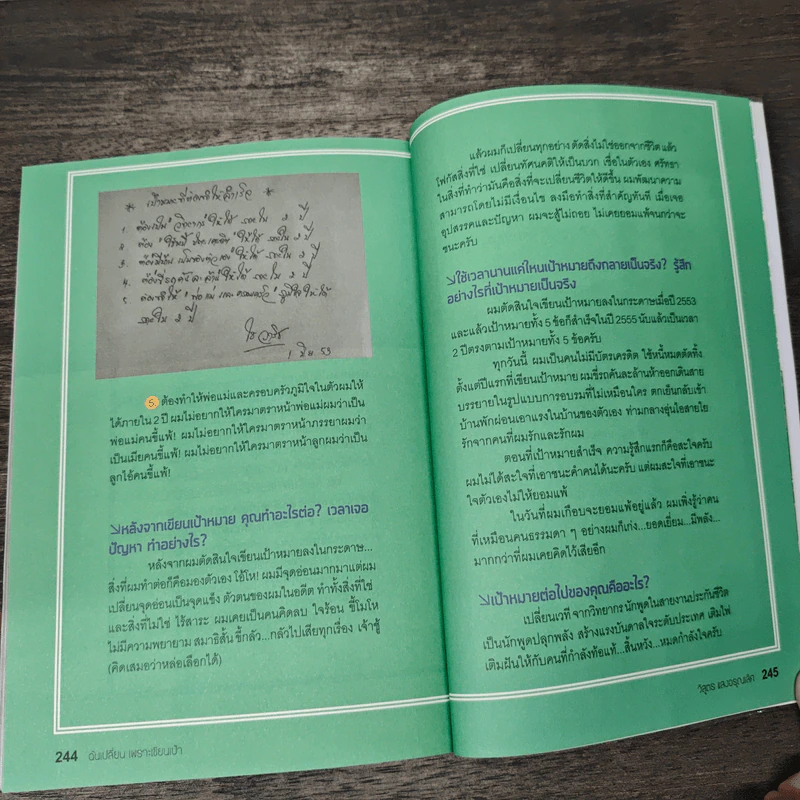 * เป้าหมายที่ต้องทำให้สำเร็จ *
1. ต้องเป็น "วิทยากร" ให้ได้ ภายใน 2 ปี
2. ต้อง "ใช้หนี้ บัตรเครดิต" ให้ได้ ภายใน 2 ปี
3. ต้องมีบ้าน เป็นของตัวเอง ให้ได้ ภายใน 2 ปี
4. ต้องขี่รถคันละล้าน ให้ได้ ภายใน 2 ปี
5. ต้องทำให้ "พ่อ แม่ และ ครอบครัว" ภูมิใจ ให้ได้
ภายใน 2 ปี
53
5. ต้องทำให้พ่อแม่และครอบครัวภูมิใจในตัวผมให้
ได้ภายใน 2 ปี ผมไม่อยากให้ใครมาตราหน้าพ่อแม่ผมว่าเป็น
พ่อแม่คนขี้แพ้! ผมไม่อยากให้ใครมาตราหน้าภรรยาผมว่า
เป็นเมียคนขี้แพ้! ผมไม่อยากให้ใครมาตราหน้าลูกผมว่าเป็น
ลูกไอ้คนขี้แพ้!
หลังจากเขียนเป้าหมาย คุณทำอะไรต่อ? เวลาเจอ
ปัญหา ทำอย่างไร?
หลังจากผมตัดสินใจเขียนเป้าหมายลงในกระดาษ...
สิ่งที่ผมทำต่อก็คือมองตัวเอง โอ้โห! ผมมีจุดอ่อนมากมาแต่ผม
เปลี่ยนจุดอ่อนเป็นจุดแข็ง ตัวตนของผมในอดีต ทำทั้งสิ่งที่ใช่
และสิ่งที่ไม่ใช่ ไร้สาระ ผมเคยเป็นคนคิดลบ ใจร้อน ขี้โมโห
ไม่มีความพยายาม สมาธิสั้น ขี้กลัว...กลัวไปเสียทุกเรื่อง เจ้าชู้
(คิดเสมอว่าหล่อเลือกได้)
244 ฉันเปลี่ยน เพราะเขียนเป้า
แล้วผมก็เปลี่ยนทุกอย่าง ตัดสิ่งไม่ใช่ออกจากชีวิต แล้ว
โฟกัสสิ่งที่ใช่ เปลี่ยนทัศนคติให้เป็นบวก เชื่อในตัวเอง ศรัทธา
ในสิ่งที่ทำว่ามันคือสิ่งที่จะเปลี่ยนชีวิตให้ดีขึ้น ผมพัฒนาความ
สามารถโดยไม่มีเงื่อนไข ลงมือทำสิ่งที่สำคัญทันที เมื่อเจอ
อุปสรรคและปัญหา ผมจะสู้ไม่ถอย ไม่เคยยอมแพ้จนกว่าจะ
ชนะครับ
ใช้เวลานานแค่ไหนเป้าหมายถึงกลายเป็นจริง? รู้สึก
อย่างไรที่เป้าหมายเป็นจริง
ผมตัดสินใจเขียนเป้าหมายลงในกระดาษเมื่อปี 2553
และแล้วเป้าหมายทั้ง 5 ข้อก็สำเร็จในปี 2555 นับแล้วเป็นเวลา
2 ปีตรงตามเป้าหมายทั้ง 5 ข้อครับ
ทุกวันนี้ ผมเป็นคนไม่มีบัตรเครดิต ใช้หนี้หมดตัดทิ้ง
ตั้งแต่ปีแรกที่เขียนเป้าหมาย ผมขี่รถคันละล้านห้าออกเดินสาย
บรรยายในรูปแบบการอบรมที่ไม่เหมือนใคร ตกเย็นกลับเข้า
บ้านพักผ่อนเอาแรงในบ้านของตัวเอง ท่ามกลางอุ่นไอสายใย
รักจากคนที่ผมรักและรักผม
ตอนที่เป้าหมายสำเร็จ ความรู้สึกแรกก็คือสะใจครับ
ผมไม่ได้สะใจที่เอาชนะคำคนได้นะครับ แต่ผมสะใจที่เอาชนะ
ใจตัวเองไม่ให้ยอมแพ้
ในวันที่ผมเกือบจะยอมแพ้อยู่แล้ว ผมเพิ่งรู้ว่าคน
ที่เหมือนคนธรรมดา ๆ อย่างผมก็เก่ง...ยอดเยี่ยม...มีพลัง...
มากกว่าที่ผมเคยคิดไว้เสียอีก
เป้าหมายต่อไปของคุณคืออะไร?
เปลี่ยนเวที จากวิทยากรนักพูดในสายงานประกันชีวิต
เป็นนักพูดปลุกพลัง สร้างแรงบันดาลใจระดับประเทศ เติมไฟ
เติมฝันให้กับคนที่กำลังท้อแท้...สิ้นหวัง...หมดกำลังใจครับ
วิสูตร แสงอรุณเลิศ 245